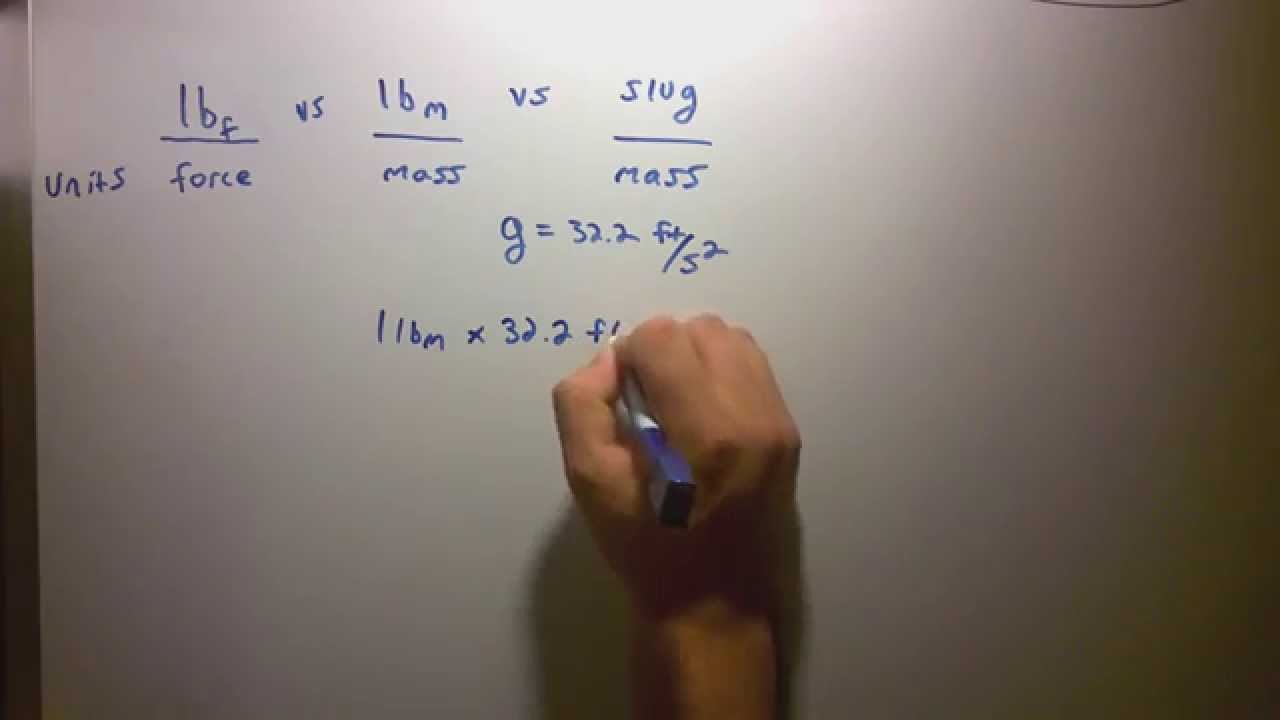 lbf vs lbm vs slug
units force mass mass
g = 32.2 ft/s2
1 lbm × 32.2